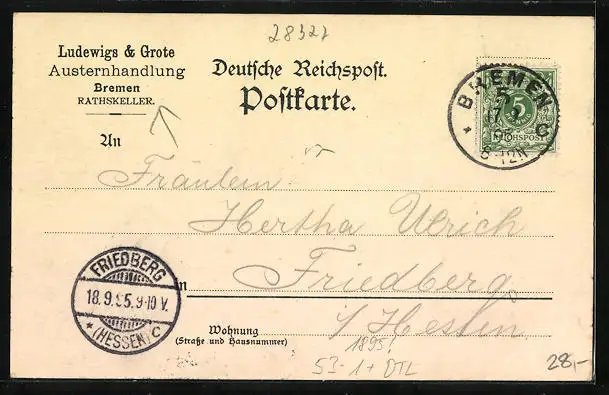 28327
Ludewigs & Grote
Austernhandlung
Bremen
RATHSKELLER.
Deutsche Reichspost.
Postkarte.
BREMEN
C
17 9
95
8-12N
5
REICHSPOST
An
Fräulein
Hertha Ulrich
in Friedberg
i/Hessen
FRIEDBERG
18.9.95.9-10 V.
* (HESSEN) C
Wohnung
(Straße und Hausnummer)
1895!
53-1+DTL
28,-